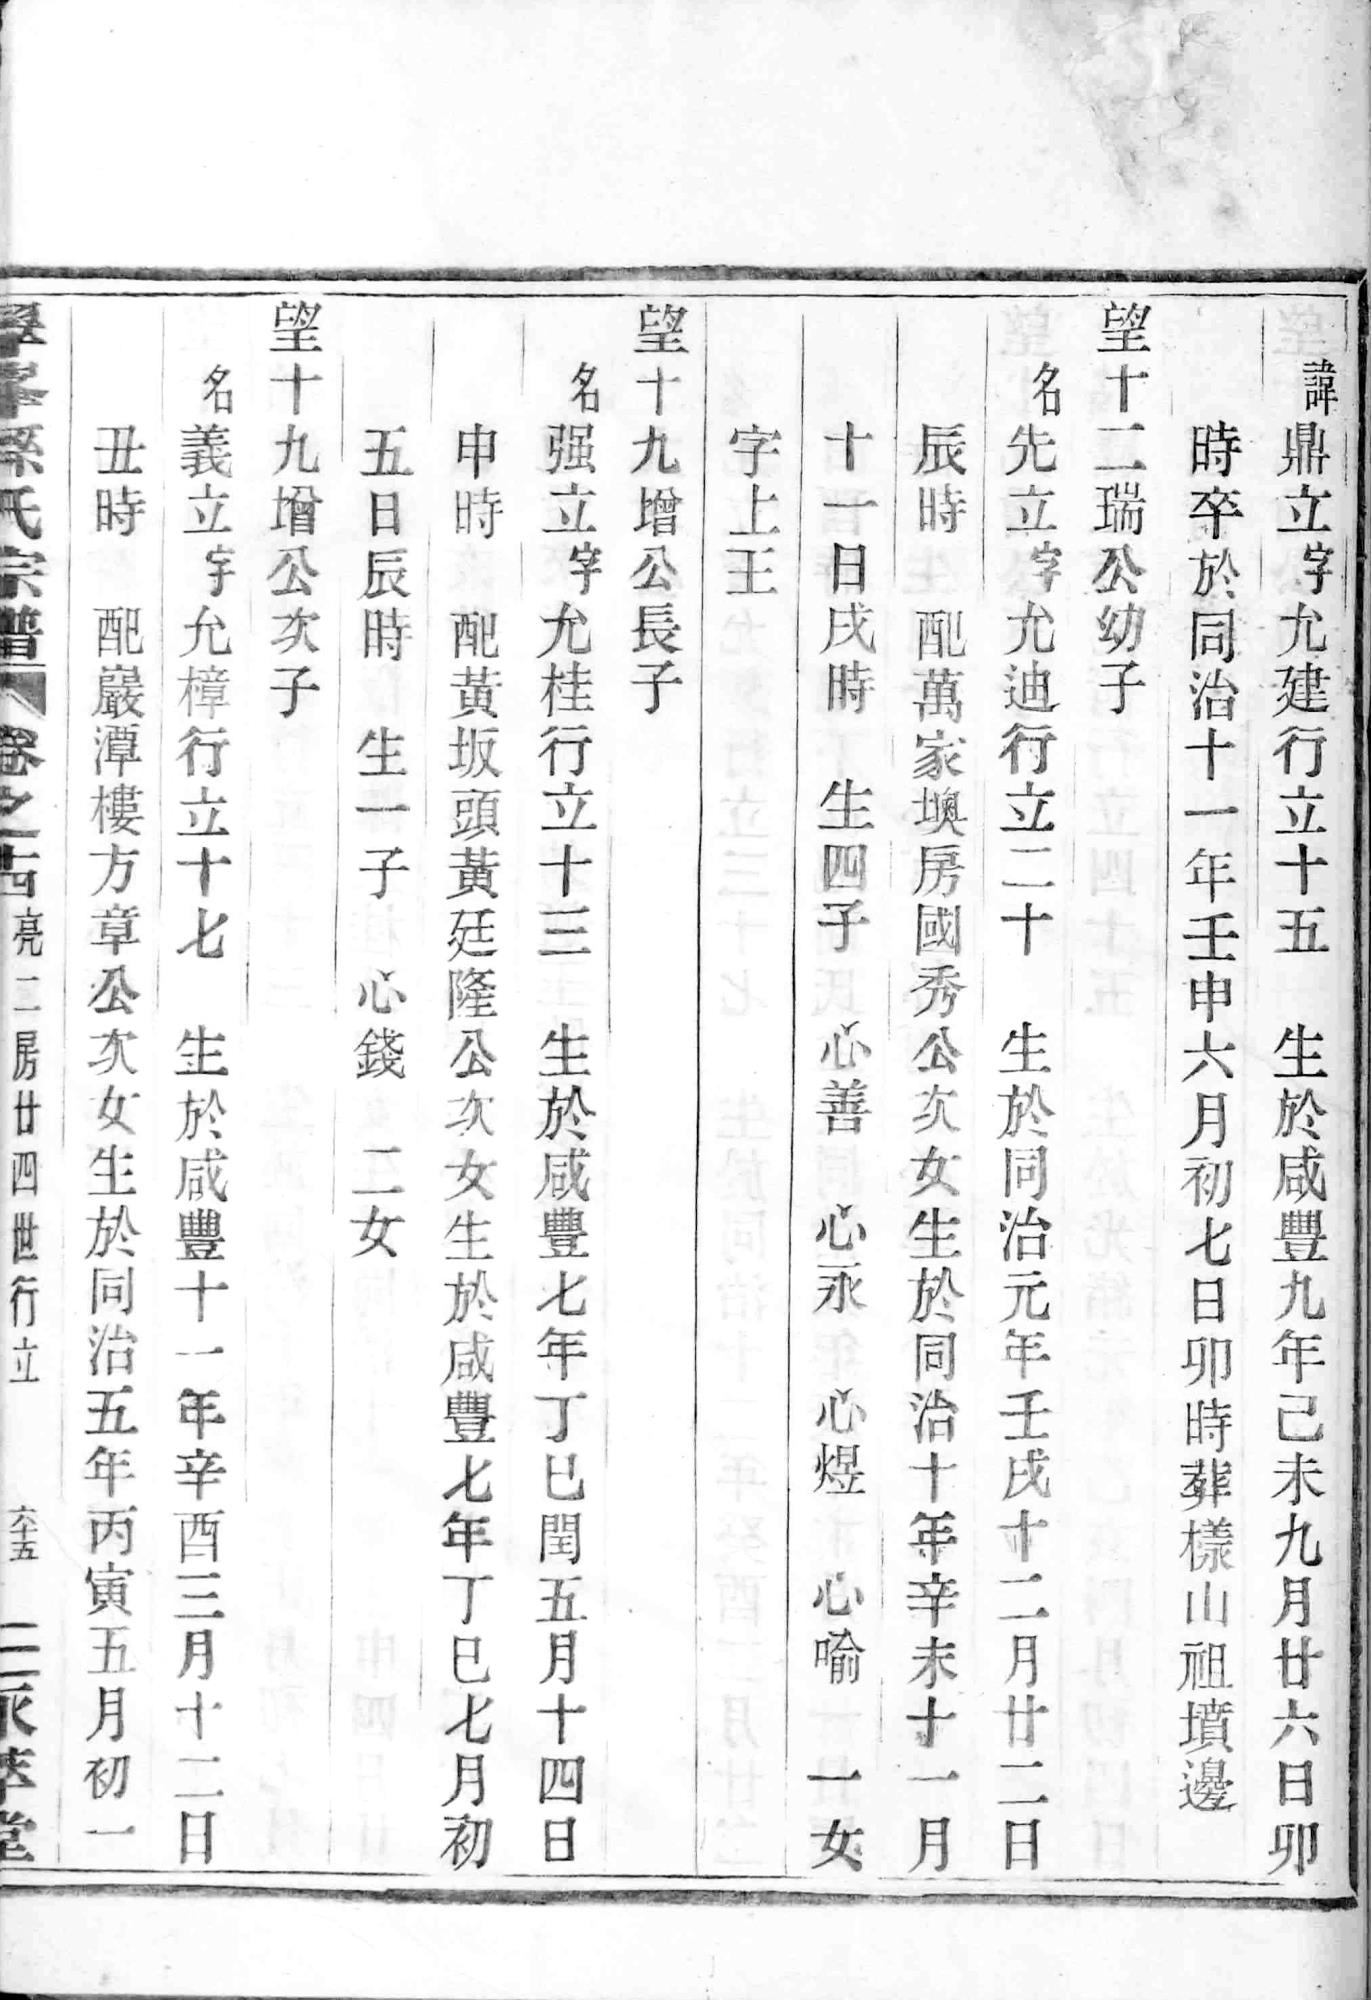 諱鼎立字允建行立十五　生於咸豐九年己未九月廿六日卯
時卒於同治十一年壬申六月初七日卯時葬樣山祖墳邊
望十二瑞公幼子
名先立字允迪行立二十　生於同治元年壬戌十二月廿二日
辰時　配萬家墺房國秀公次女生於同治十年辛未十一月
十一日戌時　生四子　心善　心永　心煜　心喻　一女
字上王
望十九增公長子
名强立字允桂行立十三　生於咸豐七年丁巳閏五月十四日
申時　配黃坂頭黃廷隆公次女生於咸豐七年丁巳七月初
五日辰時　生一子　心錢　二女
望十九增公次子
名義立字允樟行立十七　生於咸豐十一年辛酉三月十二日
丑時　配巖潭樓方章公次女生於同治五年丙寅五月初一
孫氏宗譜　卷之十古　亮三房廿四世行立　六十五　二派萃堂